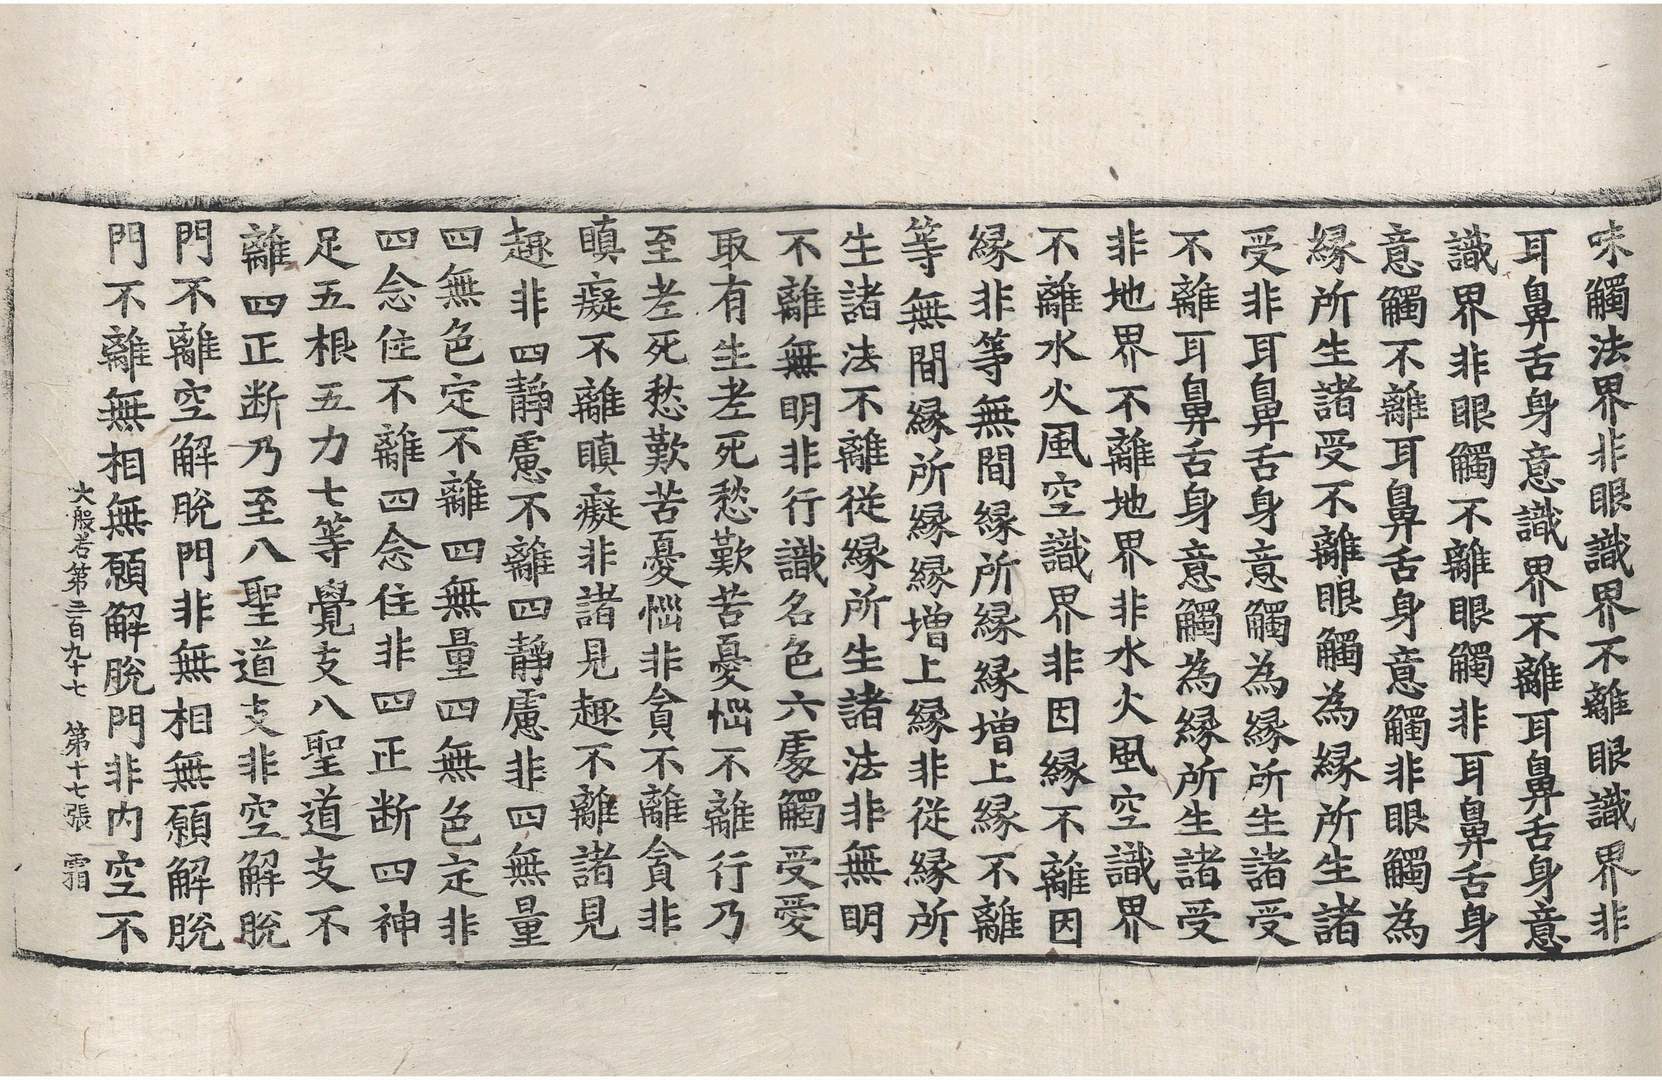 味觸法界非眼識界不離眼識界非
耳鼻舌身意識界不離耳鼻舌身意
識界非眼觸不離眼觸非耳鼻舌身
意觸不離耳鼻舌身意觸非眼觸為
縁所生諸受不離眼觸為縁所生諸
受非耳鼻舌身意觸為縁所生諸受
不離耳鼻舌身意觸為縁所生諸受
非地界不離地界非水火風空識界
不離水火風空識界非因縁不離因
縁非等無間縁所縁縁增上縁不離
等無間縁所縁縁增上縁非從縁所
生諸法不離從縁所生諸法非無明
不離無明非行識名色六處觸受愛
取有生老死愁歎苦憂惱不離行乃
至老死愁歎苦憂惱非貪不離貪非
瞋癡不離瞋癡非諸見趣不離諸見
趣非四靜慮不離四靜慮非四無量
四無色定不離四無量四無色定非
四念住不離四念住非四正断四神
足五根五力七等覺支八聖道支不
離四正断乃至八聖道支非空解脫
門不離空解脫門非無相無願解脫
門不離無相無願解脫門非內空不
大般若第三百九十七 第十七張 霜